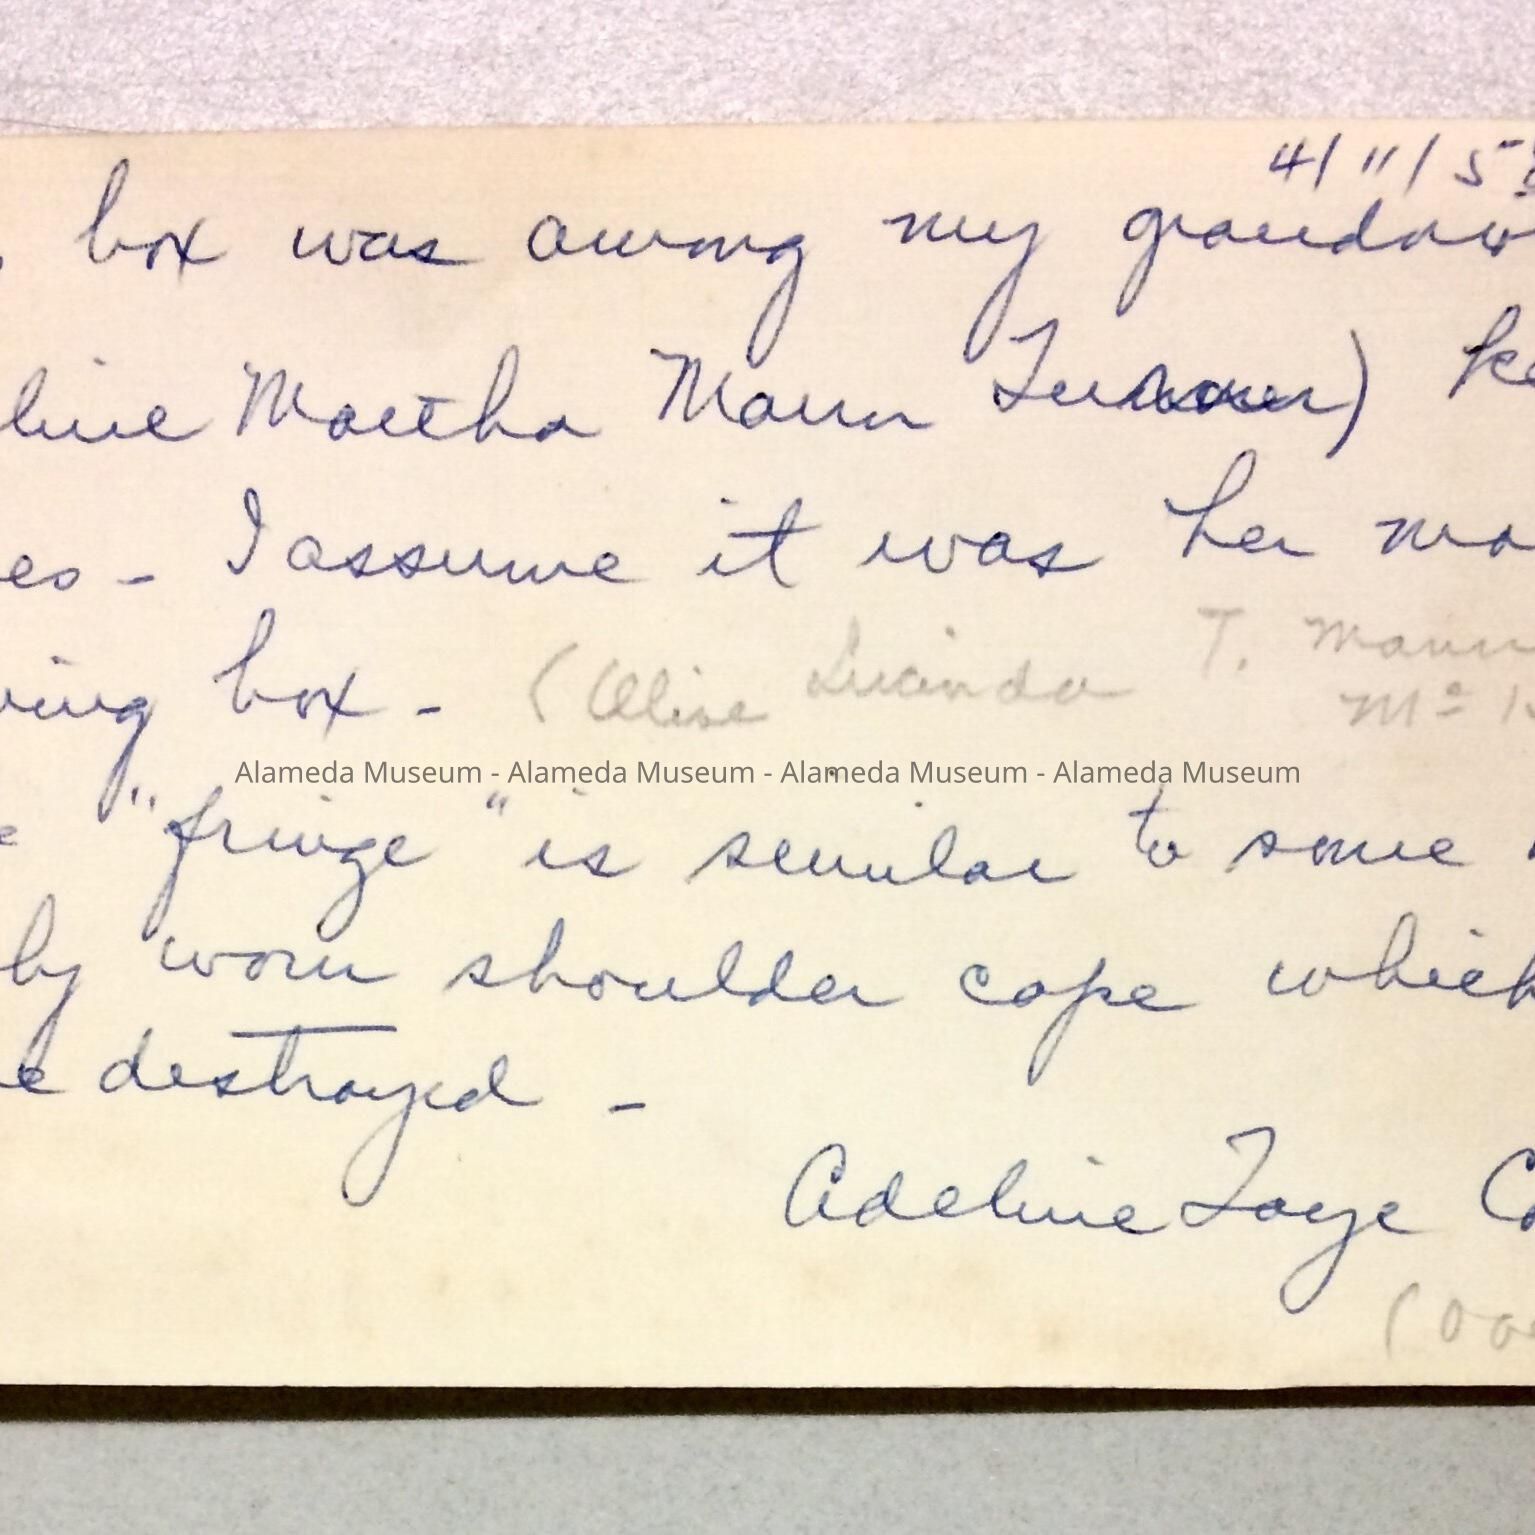 4/11/5
box was among my grandmo
line Martha Mann Turner) ke
es - I assume it was her mo
ving box - (Olive Lucinda T. Mann
Mc
Alameda Museum - Alameda Museum - Alameda Museum - Alameda Museum
e "fringe" is similar to some
by worn shoulder cape which
e destroyed -
Adeline Faye Co